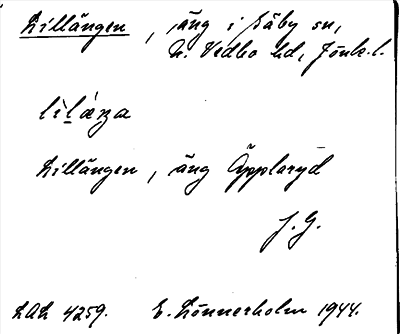 Lillängen, äng i Säby sn,
N. Vedbo hd, Jönk. l.
Lillängen, äng Äpplaryd
J. G.
LAL 4259. E. Lönnerholm 1944.